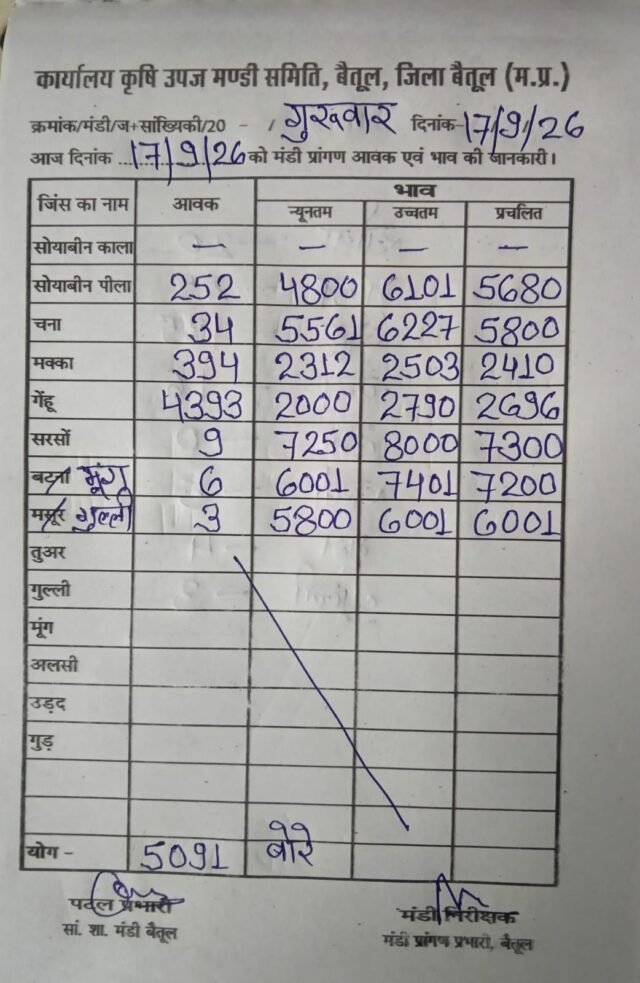 कार्यालय कृषि उपज मण्डी समिति, बैतूल, जिला बैतूल (म.प्र.)
क्रमांक/मंडी/ज+सांख्यिकी/20 - / गुरुवार दिनांक-17/9/26
आज दिनांक ...17/9/26 को मंडी प्रांगण आवक एवं भाव की जानकारी।
जिंस का नाम आवक भाव
न्यूनतम उच्चतम प्रचलित
सोयाबीन काला — — — —
सोयाबीन पीला 252 4800 6101 5680
चना 34 5561 6227 5800
मक्का 394 2312 2503 2410
गेंहू 4393 2000 2790 2696
सरसों 9 7250 8000 7300
बटना मूंग 6 6001 7401 7200
मसूर गुल्ली 3 5800 6001 6001
तुअर
गुल्ली
मूंग
अलसी
उड़द
गुड़
योग - 5091 बोरे
पटल प्रभारी मंडी निरीक्षक
सां. शा. मंडी बैतूल मंडी प्रांगण प्रभारी, बैतूल